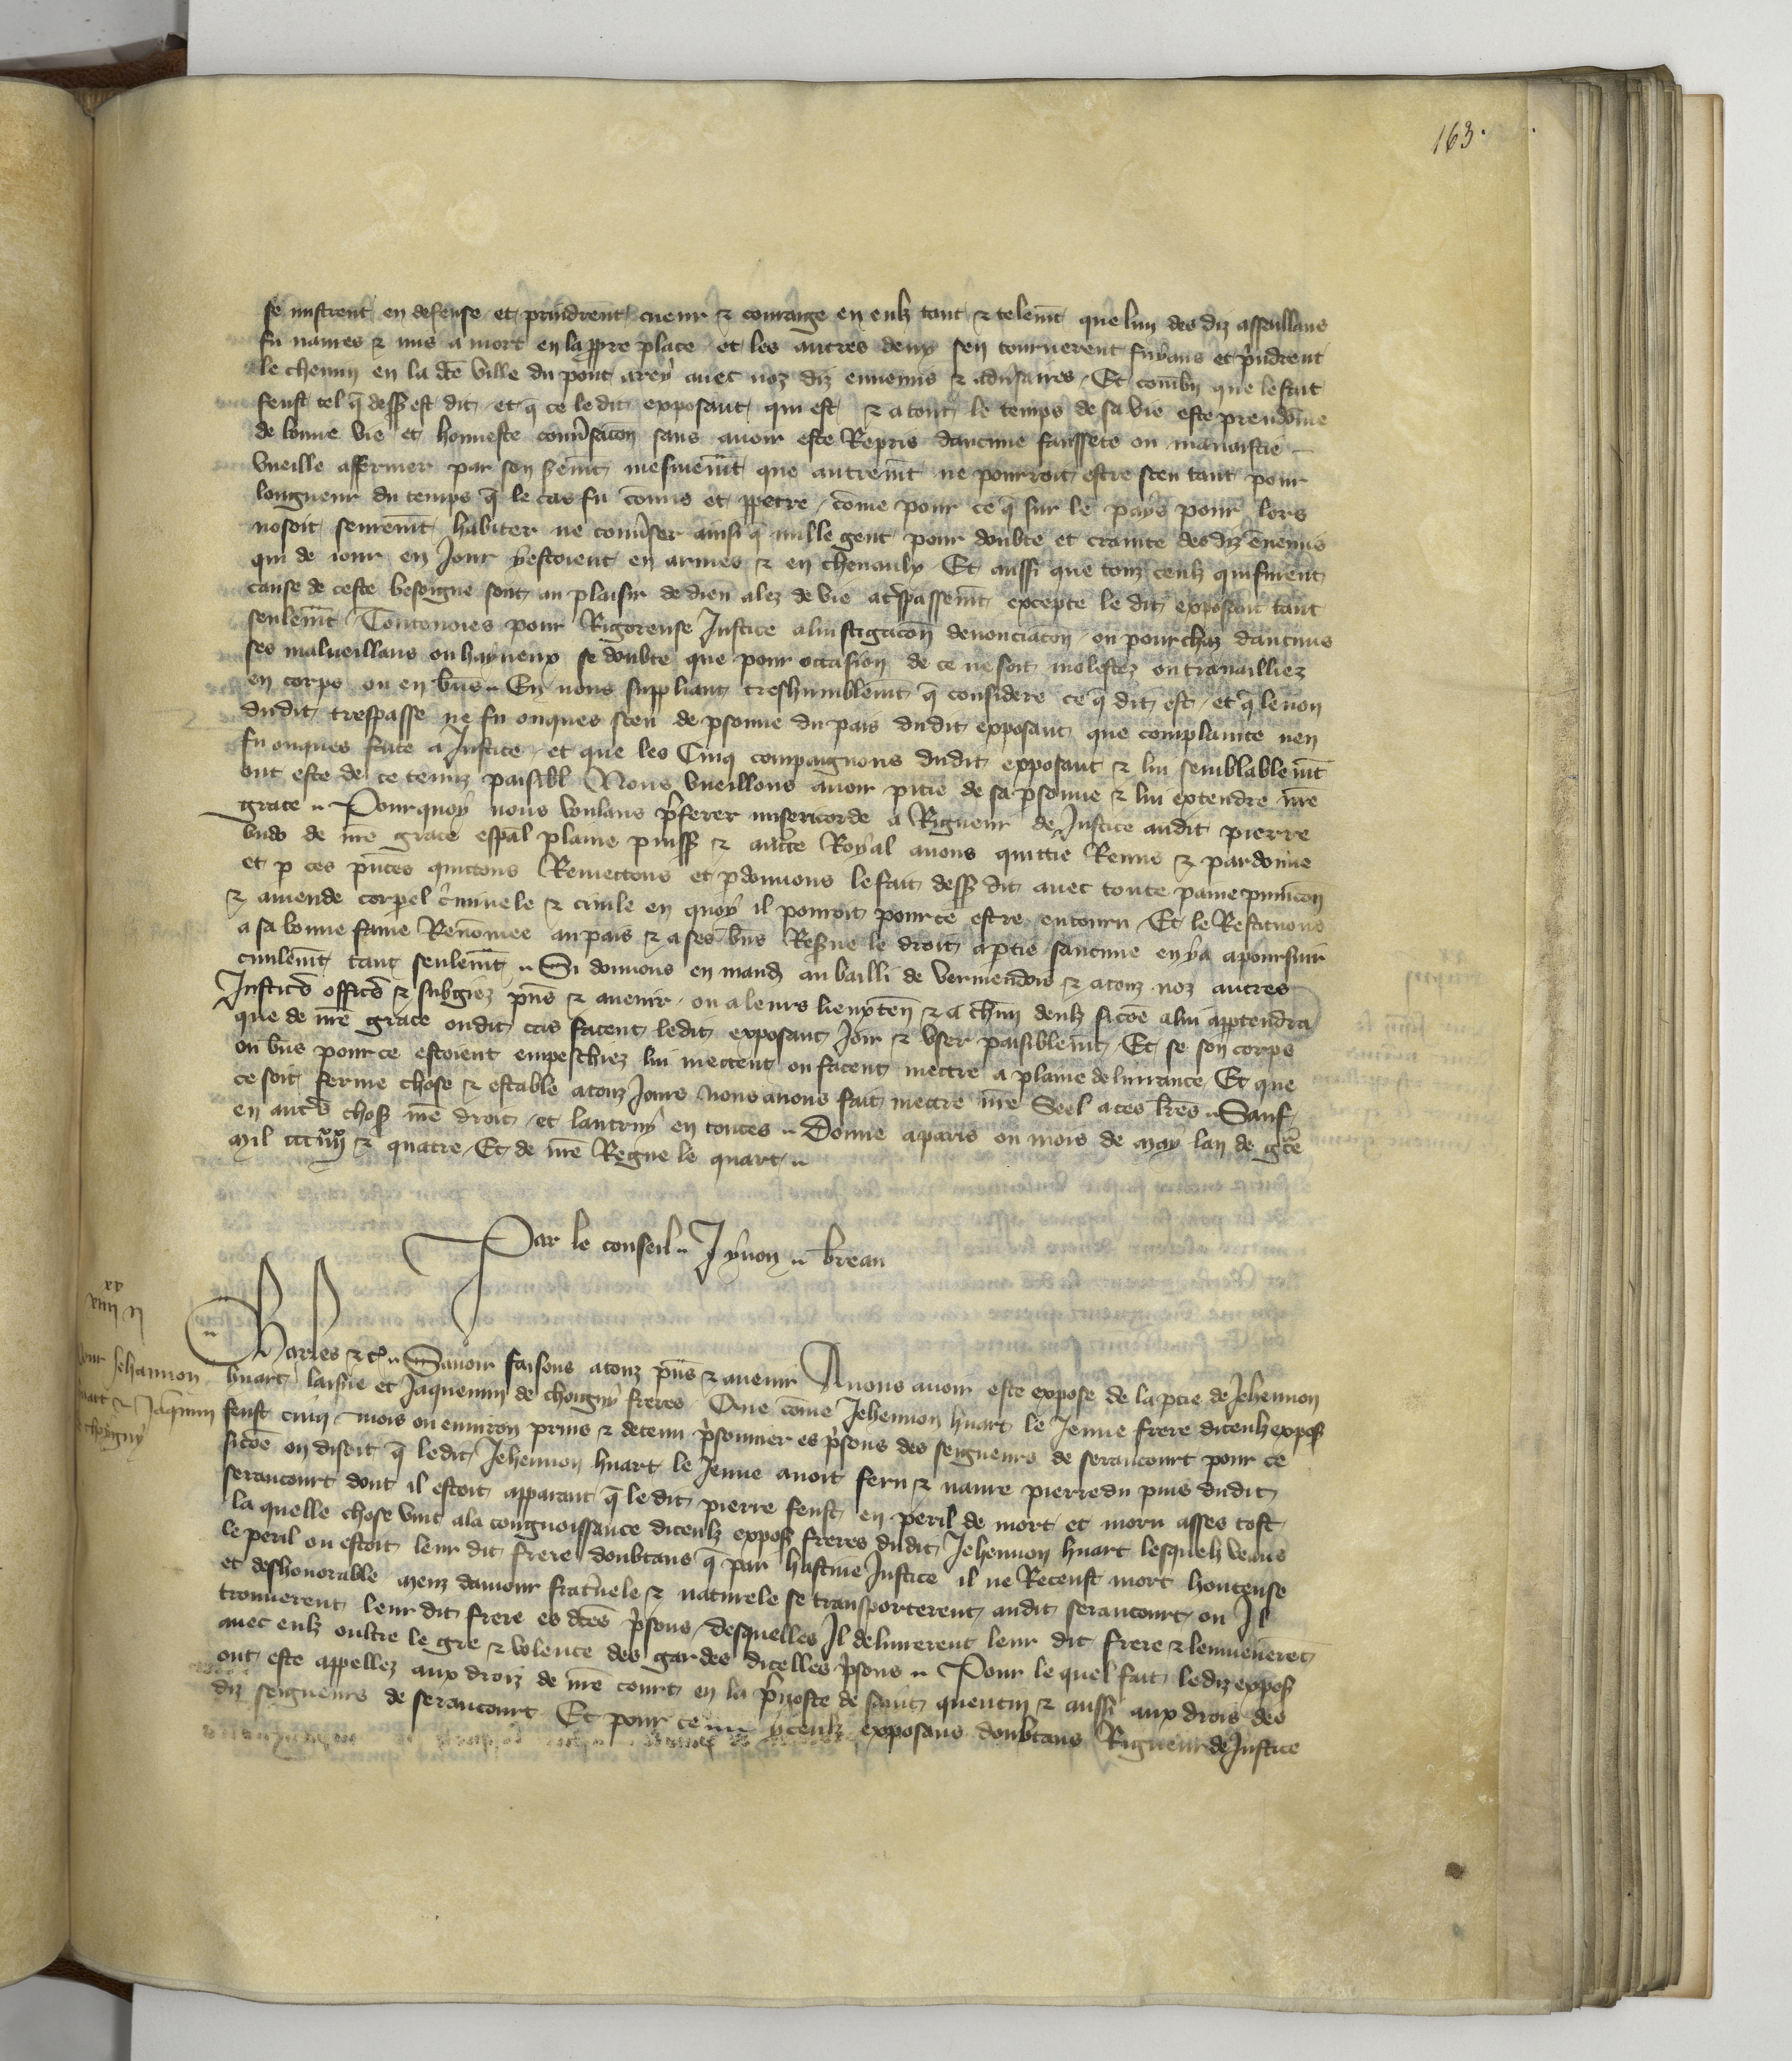 163.
se mistrent en defense et prindrent cueur & courage en eulz tant & telemt que lun des diz assaillans
fu navrés & mis a mort en la ppre place et les autres deux sen tournerent fuyans et pindrent
le chemin en la dce ville du pont arcy avec noz diz ennemis & advsaires Et combn que le fait
feust tel q dess est dit et q ce ledit exposant qui est & a tout le temps de sa vie este preudome
de bonne vie et honneste convsacon sans avoir este Repris daucune faussete ou mauvaistie
vueille affermer par son semt mesmemt que autremt ne pourroit estre sceu tant pour
longueur du temps q le cas fu comis et ppetre come pour ce q sur le pays pour lors
nosoit seuremt habiter ne convser ainsi q nulle gent pour doubte et crainte des diz ennemis
qui de jour en Jour y estoient en armes & en chevaulx Et aussi que touz ceulz qui furent
cause de ceste besoigne sont au plaisir de dieu alez de vie a trespassemt excepte le dit exposant tant
seulemt Toutevoies pour Rigoreuse Justice a linstigacon denonciacon ou pourchaz daucuns
ses malveillans ou hayneux se doubte que pour occasion de ce ne soit molestez ou travailliez
en corps ou en bns En nous suppliant treshumblemt q considere ce q dit est et q le nom
dudit trespasse ne fu onques sceu de psonne du pais dudit exposant que complainte nen
fu onques faite a Justice et que les Cinq compaignons dudit exposant & lui semblablemt
ont este de ce tenuz paisibl Nous vueillons avoir pitie de sa psonne & lui extendre nre
grace Pourquoy nous voulans pferer misericorde a Rigueur de Justice audit pierre
budo de nre grace espal plaine puiss & aucte Royal avons quittie Remis & pardonne
et p ces pntes quittons Remettons et pdonnons le fait dess dit avec toute paine punicon
& amende corpel criminele & civile en quoy il pourroit pour ce estre encouru Et le Restituons
a sa bonne fame Renommee au pais & a ses bns Reserve le droit a ptie saucune en y a a poursuir
civilemt tant seulemt Si donnons en mand au bailli de vermendois & a touz noz autres
Justics offics & subgiez pns & avenir ou a leurs lieuxten & a chun deulz sicoe a lui apptendra
que de nre grace oudit cas facent ledit exposant Joir & user paisiblemt Et se son corps
ou bns pour ce estoient empeschiez lui mettent ou facent mettre a plaine delivrance Et que
ce soit ferme chose & estable a touz Jours Nous avons fait mettre nre Seel a ces lres Sauf
en autrs chos nre droit et lautruy en toutes Donne a paris ou mois de may lan de gce
Mil CCC IIIIxx & quatre Et de nre Regne le quart
Par le conseil J. yvon breau
xv
viii n
Pour Jehannon
huart & Jaqmin
de choigny
Charles &c Savoir faisons a touz pns & avenir A nous avoir este expose de la ptie de Jehennon
huart laisne et Jaquemin de choigny freres Que come Jehennon huart le Jenne frere diceulx expos
feust cinq mois ou environ prins & detenu prisonnier es prisons des seigneurs de serancourt pour ce
sicoe on disoit q ledit Jehennon huart le Jenne avoit feru & navre pierre du puis dudit
serancourt dont il estoit apparant q le dit pierre feust en peril de mort et moru asses tost
la quelle chose vint a la congnoissance diceulz expos freres dudit Jehennon huart lesquelz veans
le peril ou estoit leur dit frere doubtans q par hastive Justice il ne Receust mort honteuse
et deshonorable meuz damour fraternele & naturele se transporterent audit serancourt ou Il
trouverent leur dit frere es dces prisons desquelles Il delivrerent leur dit frere & lenmenerent
avec eulz oultre le gre & volente des gardes dicelles prisons Pour le quel fait lediz expos
ont este appellez aux droiz de nre court en la prevoste de saint quentin & aussi aux drois des
diz seigneurs de serancourt Et pour ce yceulz exposans doubtans Rigueur de Justice